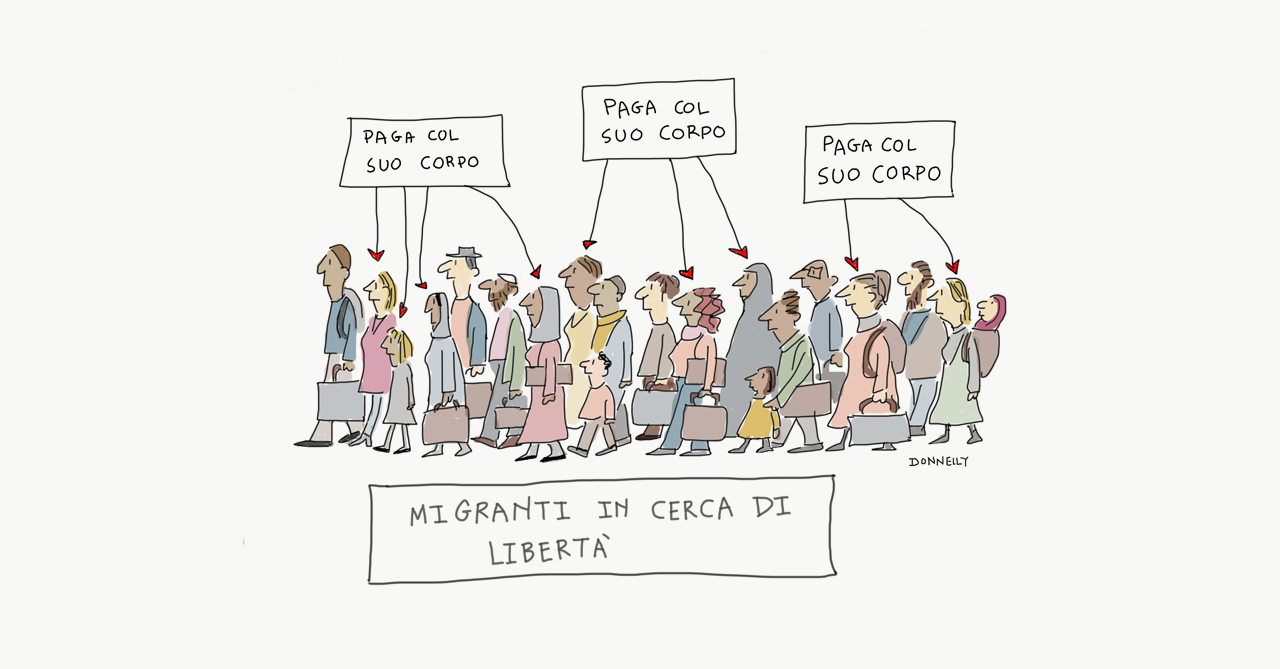 PAGA COL
SUO CORPO
PAGA COL
SUO CORPO
PAGA COL
SUO CORPO
DONNELLY
MIGRANTI IN CERCA DI
LIBERTÀ